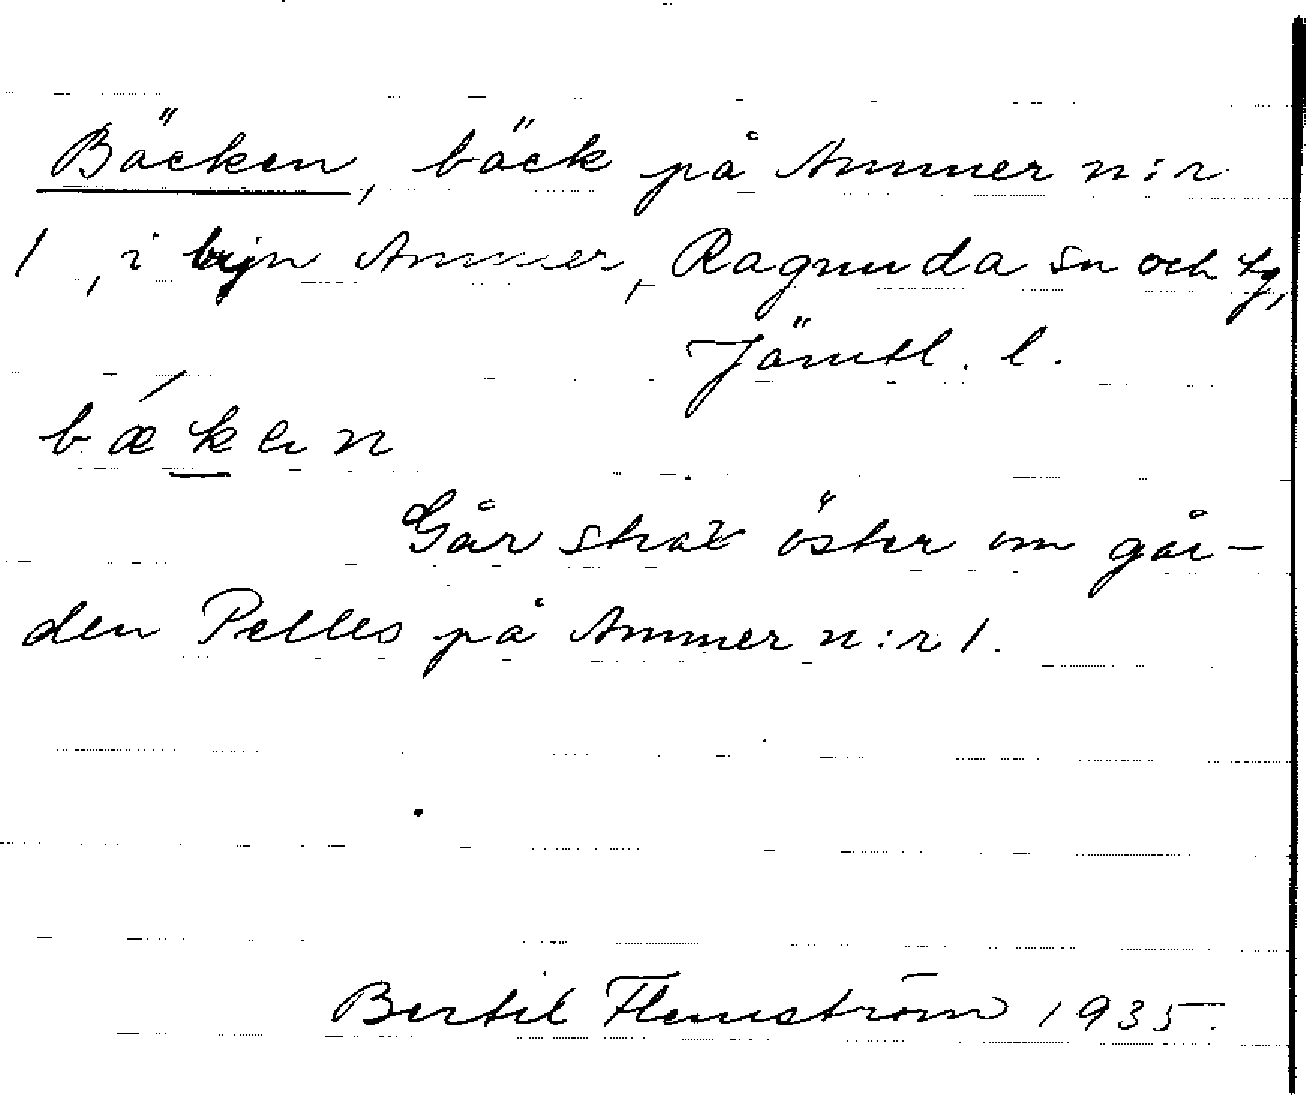 Bäcken, bäck på Ammer n:r
1, i byn Ammer, Ragunda sn och tg,
Jämtl. l.
bæ´kɐn
Går strax öster om går-
den Pelles på Ammer n:r 1.
Bertil Flemström 1935.